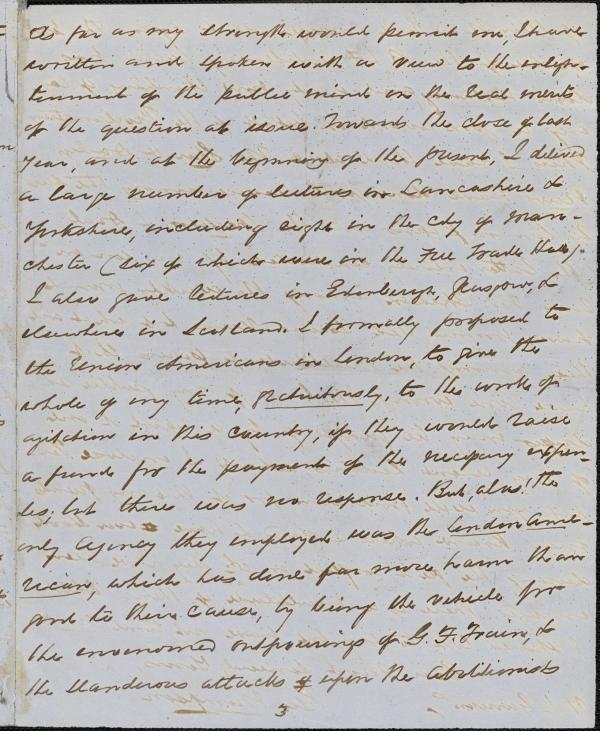 As far as my strength would permit me, I have
written and spoken with a view to the enligh-
tenment of the public mind on the real merits
of the question at issue. Towards the close of last
year, and at the beginning of the present, I delived
a large number of lectures in Lancashire &
Yorkshire, including eight in the city of Man-
chester (six of which were in the Free Trade Hall).
I also gave lectures in Edinburgh, Glasgow, &
elsewhere in Scotland. I formally proposed to
the Union Americans in London, to give the
whole of my time, gratuitously, to the work of
agitation in this country, if they would raise
a fund for the payment of the necessary expen-
ses, but there was no response. But, alas! the
only agency they employed was the London Ame-
rican, which has done far more harm than
good to their cause, by being the vehicle for
the envenomed outpourings of G. F. Train, &
the slanderous attacks upon the Abolitionists
3